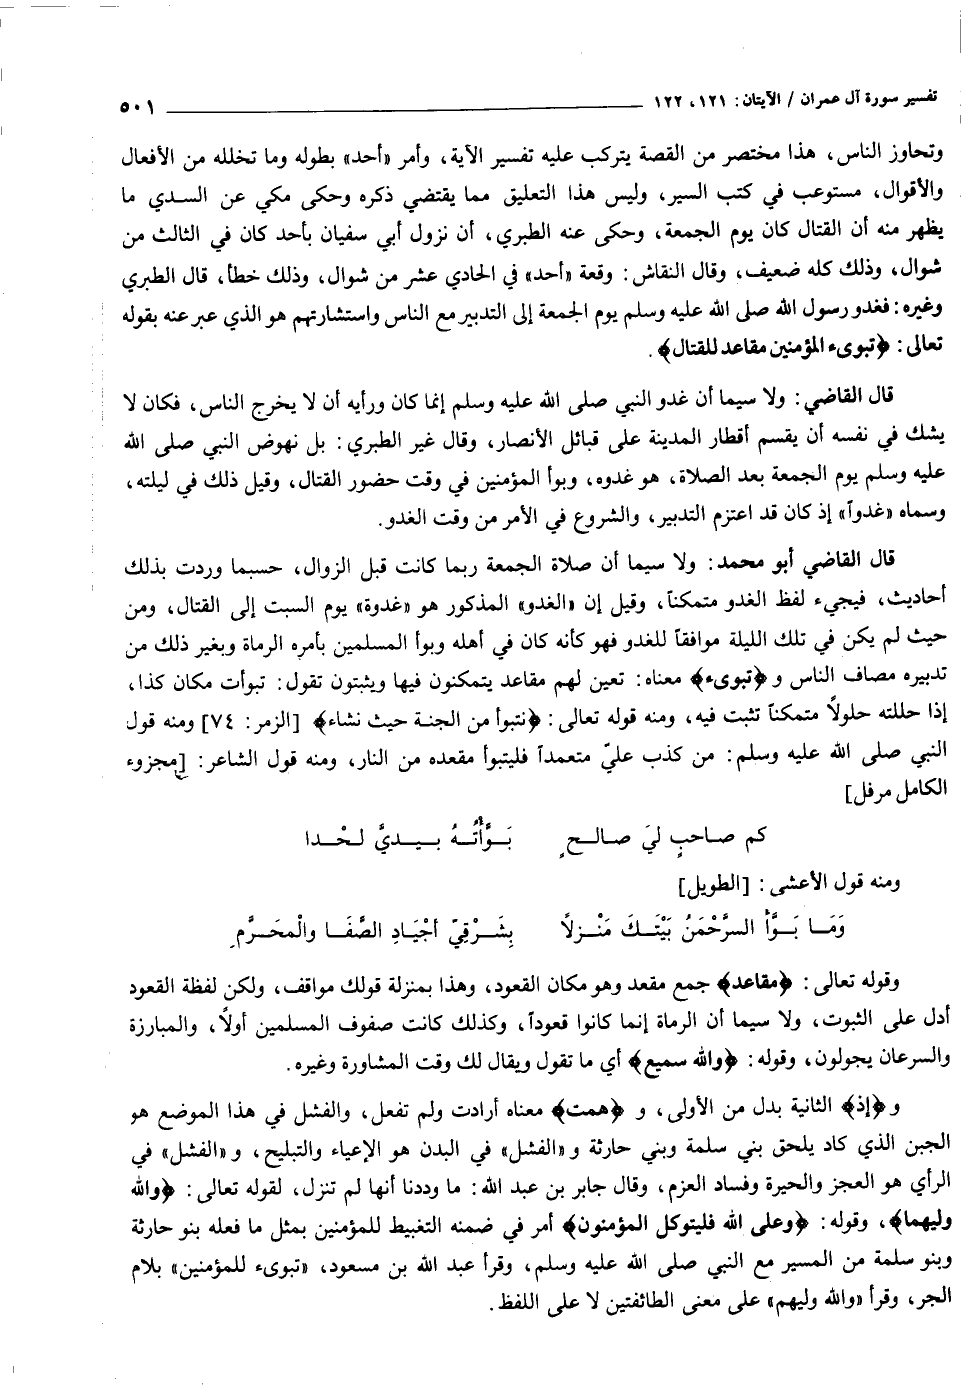 تفسير سورة آل عمران / الآيتان: ١٢١، ١٢٢ ٥٠١
وتحاوز الناس، هذا مختصر من القصة يتركب عليه تفسير الآية، وأمر «أحد» بطوله وما تخلله من الأفعال
والأقوال، مستوعب في كتب السير، وليس هذا التعليق مما يقتضي ذكره وحكى مكي عن السدي ما
يظهر منه أن القتال كان يوم الجمعة، وحكى عنه الطبري، أن نزول أبي سفيان بأحد كان في الثالث من
شوال، وذلك كله ضعيف، وقال النقاش: وقعة «أحد» في الحادي عشر من شوال، وذلك خطأ، قال الطبري
وغيره: فغدو رسول الله صلى الله عليه وسلم يوم الجمعة إلى التدبير مع الناس واستشارتهم هو الذي عبر عنه بقوله
تعالى: ﴿تبوىء المؤمنين مقاعد للقتال﴾.
قال القاضي: ولا سيما أن غدو النبي صلى الله عليه وسلم إنما كان ورأيه أن لا يخرج الناس، فكان لا
يشك في نفسه أن يقسم أقطار المدينة على قبائل الأنصار، وقال غير الطبري: بل نهوض النبي صلى الله
عليه وسلم يوم الجمعة بعد الصلاة، هو غدوه، وبوأ المؤمنين في وقت حضور القتال، وقيل ذلك في ليلته،
وسماه «غدواً» إذ كان قد اعتزم التدبير، والشروع في الأمر من وقت الغدو.
قال القاضي أبو محمد: ولا سيما أن صلاة الجمعة ربما كانت قبل الزوال، حسبما وردت بذلك
أحاديث، فيجيء لفظ الغدو متمكناً، وقيل إن «الغدو» المذكور هو «غدوة» يوم السبت إلى القتال، ومن
حيث لم يكن في تلك الليلة موافقاً للغدو فهو كأنه كان في أهله وبوأ المسلمين بأمره الرماة وبغير ذلك من
تدبيره مصاف الناس و﴿تبوىء﴾ معناه: تعين لهم مقاعد يتمكنون فيها ويثبتون تقول: تبوأت مكان كذا،
إذا حللته حلولاً متمكناً تثبت فيه، ومنه قوله تعالى: ﴿نتبوأ من الجنة حيث نشاء﴾ [الزمر: ٧٤] ومنه قول
النبي صلى الله عليه وسلم: من كذب عليّ متعمداً فليتبوأ مقعده من النار، ومنه قول الشاعر: [مجزوء
الكامل مرفل]
كم صاحبٍ ليَ صالحٍ بَوَّأتُهُ بيديَّ لحْدا
ومنه قول الأعشى: [الطويل]
وَمَا بَوَّأ الرَّحْمَنُ بَيْتَكَ مَنْزِلاً بِشَرْقِيّ أجْيَادِ الصَّفَا والْمحَرَّمِ
وقوله تعالى: ﴿مقاعد﴾ جمع مقعد وهو مكان القعود، وهذا بمنزلة قولك مواقف، ولكن لفظة القعود
أدل على الثبوت، ولا سيما أن الرماة إنما كانوا قعوداً، وكذلك كانت صفوف المسلمين أولاً، والمبارزة
والسرعان يجولون، وقوله: ﴿والله سميع﴾ أي ما تقول ويقال لك وقت المشاورة وغيره.
و﴿إذ﴾ الثانية بدل من الأولى، و﴿همت﴾ معناه أرادت ولم تفعل، والفشل في هذا الموضع هو
الجبن الذي كاد يلحق بني سلمة وبني حارثة و«الفشل» في البدن هو الإعياء والتبليح، و«الفشل» في
الرأي هو العجز والحيرة وفساد العزم، وقال جابر بن عبد الله: ما وددنا أنها لم تنزل، لقوله تعالى: ﴿والله
وليهما﴾، وقوله: ﴿وعلى الله فليتوكل المؤمنون﴾ أمر في ضمنه التغبيط للمؤمنين بمثل ما فعله بنو حارثة
وبنو سلمة من المسير مع النبي صلى الله عليه وسلم، وقرأ عبد الله بن مسعود، «تبوىء للمؤمنين» بلام
الجر، وقرأ «والله وليهم» على معنى الطائفتين لا على اللفظ.